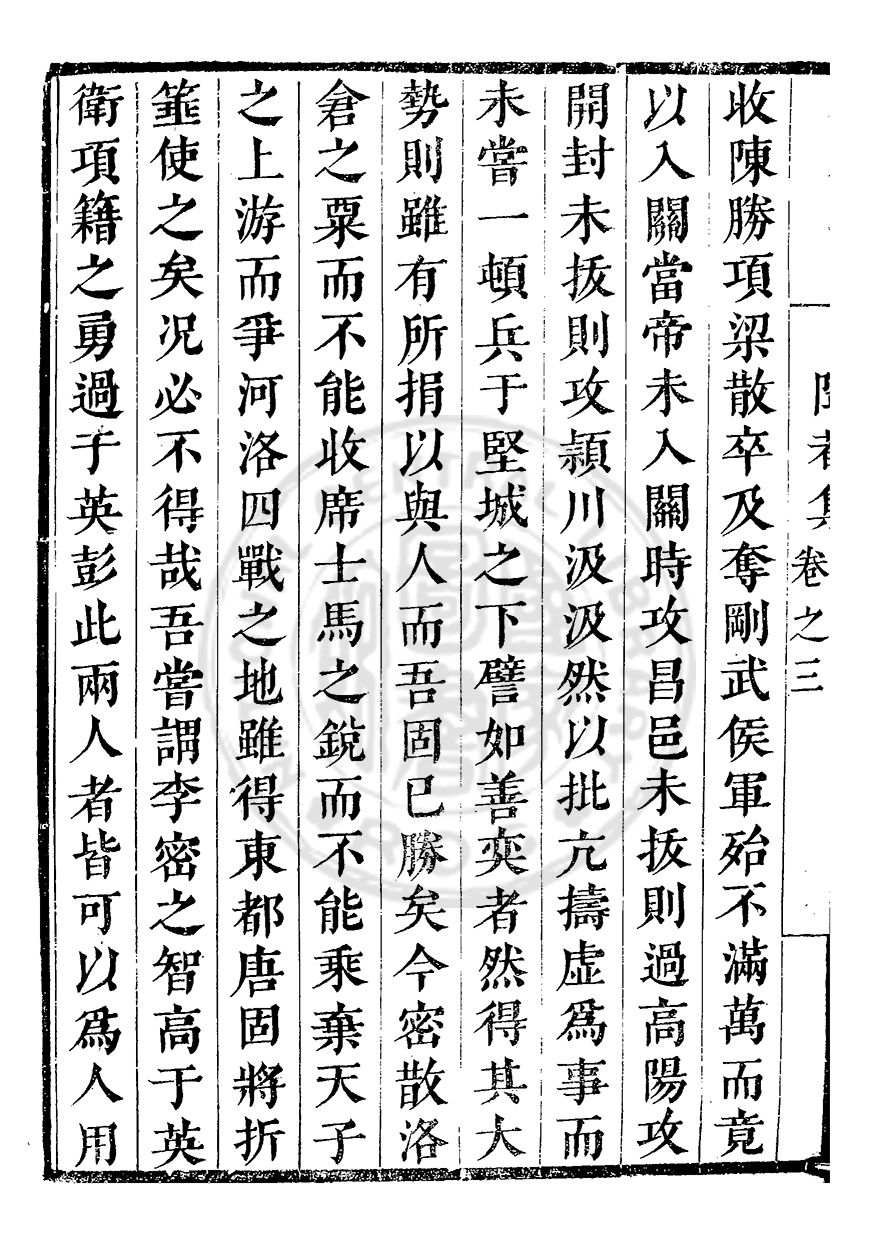 收陳勝項梁散卒及奪剛武侯軍殆不滿萬而竟
以入關當帝未入關時攻昌邑未拔則過高陽攻
開封未拔則攻潁川汲汲然以批亢擣虛爲事而
未嘗一頓兵于堅城之下譬如善奕者然得其大
勢則雖有所捐以與人而吾固已勝矣今密散洛
倉之粟而不能收席士馬之銳而不能乘棄天子
之上游而爭河洛四戰之地雖得東都唐固將折
箠使之矣况必不得哉吾嘗謂李密之智高于英
衛項籍之勇過于英彭此兩人者皆可以爲人用
卷之三